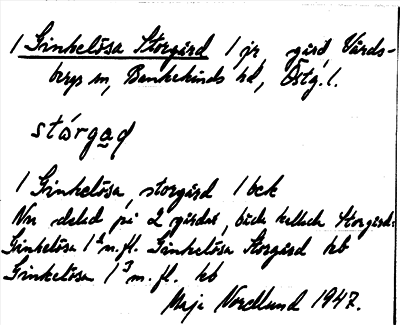 1 Ginkelösa Storgård 1 jr, gård, Vårds-
bergs sn, Bankekinds hd, Östg.l.
stórgaḍ
1 Ginkelösa, storgård 1 bek
Nu delad på 2 gårdar, båda kallade Storgård:
Ginkelösa 1² m.fl. Ginkelösa Storgård kb
Ginkelösa 1³ m.fl. kb
Maja Nordlund 1947.